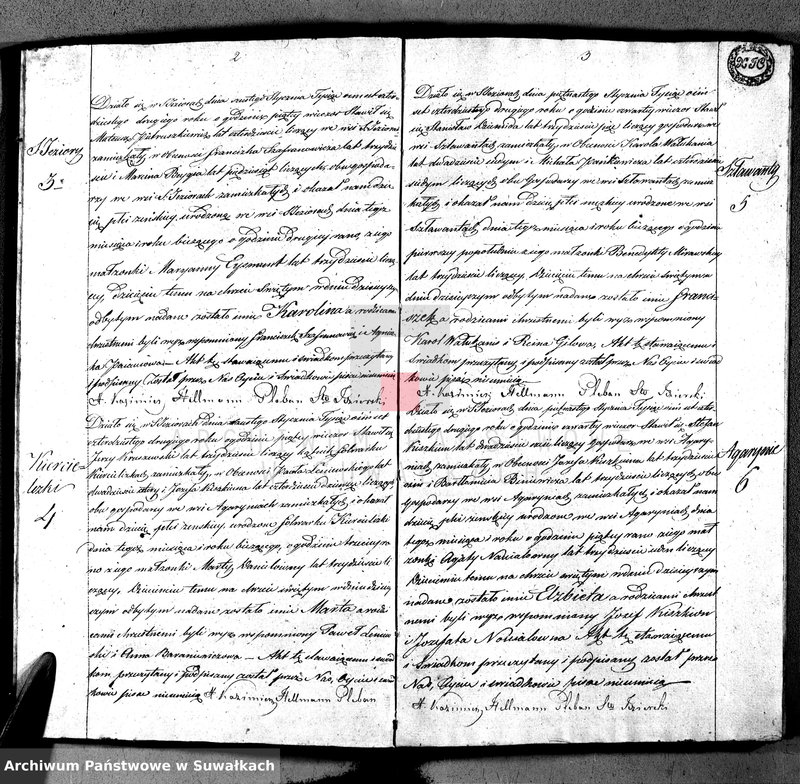 2
S. Jeziory
3.
Działo się w S. Jeziorach dnia szóstego Stycznia Tysiąc ośmset czter-
dziestego drugiego roku o godzinie piątej wieczor Stawił się
Mateusz Pietruszkiewicz lat czterdzieście liczący we wsi S. Jeziorach
zamieszkały, w obecności Franciszka Szafranowicza lat trzydzie-
ści i Marcina lat pięćdziesiąt liczących, obu gospoda-
rzy we wsi S. Jeziorach zamieszkałych i okazał nam dzie-
cię płci żeńskiej, urodzone we wsi S. Jeziorach dnia tegoż
miesiąca i roku bieżącego o godzinie drugiej rano, z jego
małżonki Maryanny Eysmont lat trzydzieście licz-
ący, Dziecięciu temu na chrzcie Świętym w dniu dzisiejszym
odbytym nadane zostało imie Karolina a rodzicami
chrzestnemi byli wyżej wspomniony Franciszek Szafranowicz i Agnie-
szka — Akt ten stawającemu i świadkom przeczytany
i podpisany został przez Nas Oycu i świadkowie pisać nieumieją
X. Kazimierz Hellmann Pleban Sto Jezierski
Kiercie-
liszki
4
Działo się w S. Jeziorach dnia szóstego Stycznia Tysiąc ośmset
czterdziestego drugiego roku o godzinie piątej wieczor Stawił się
Jerzy Kraszewski lat trzydzieście liczący folwarku
Kiercieliszkach zamieszkały, w Obecności Pawła lat
dwadzieścia cztery i Józefa Kieszkiuna lat czterdzieście dziewięć liczących
obu gospodarzy we wsi Agarynach zamieszkałych i okazał
nam dziecię płci żeńskiej urodzone folwarku Kiercieliszki
dnia tegoż miesiąca i roku bieżącego, o godzinie trzeciej ra-
no z jego małżonki Marty lat trzydzieście li-
czącej, Dziecieciu temu na chrzcie świętym w dniu dzisiej-
szym odbytym nadane zostało imie Marta a rodzi-
cami chrzestnemi byli wyżej wspomniony Paweł
i Anna Baranowiczowa — Akt ten stawającemu i świad-
kom przeczytany i podpisany został przez Nas, Oycu i świad-
kowie pisać nieumieją X. Kazimierz Hellmann Pleban
3
Sztawanty
5
Działo się w S. Jeziorach dnia piętnastego Stycznia Tysiąc ośm-
set czterdziestego drugiego roku o godzinie czwartej wieczor Stawił
się Stanisław lat trzydzieście pięć liczący gospodarz we
wsi Sztawantach zamieszkały w Obecności Karola Matulania
lat dwadzieście siedym i Michała Janikanisa lat czterdzieście
siedym liczących obu Gospodarzy we wsi Sztawantach zamie-
szkałych i okazał nam Dziecię płci męzkiej urodzone we wsi
Sztawantach dnia tegoż miesiąca i roku bieżącego o godzinie
pierwszej popołudniu z jego małżonki Benedykty
lat trzydzieście liczący, Dziecieciu temu na chrzcie świętym w
dniu dzisiejszym odbytym nadane zostało imie Franci-
szek, a rodzicami chrzestnemi byli wyżej wspomniony
Karol Matulanis i Akt ten stawającemu i
świadkom przeczytany i podpisany został przez Nas Oycu i świad-
kowie pisać nieumieją
X. Kazimierz Hellmann Pleban Sto Jezierski
Agarynie
6
Działo się w S. Jeziorach dnia piętnastego Stycznia Tysiąc ośmset czter-
dziestego drugiego roku o godzinie czwartej wieczor Stawił się Stefan
Kieszkun lat dwadzieścia liczący Gospodarz we wsi Agary-
niach zamieszkały w Obecności Jozefa Kieszkiuna lat trzydzieście
i Bartłomieja lat trzydzieście liczących, obu
Gospodarzy we wsi Agaryniach zamieszkałych i okazał nam
dziecię płci żeńskiej urodzone we wsi Agaryniach dnia
tegoż miesiąca i roku o godzinie piątej rano z jego mał-
żonki Agaty lat trzydzieście liczący
Dziecieciu temu na chrzcie świętym w dniu dzisiejszym
nadane zostało imie Elżbieta a rodzicami chrzest-
nemi byli wyżej wspomniony Józef Kieszkun
i Jozefata Akt ten stawającemu
i świadkom przeczytany i podpisany został przez
Nas, Oycu i świadkowie pisać nieumieją
X. Kazimierz Hellmann Pleban Sto Jezierski
Archiwum Państwowe w Suwałkach